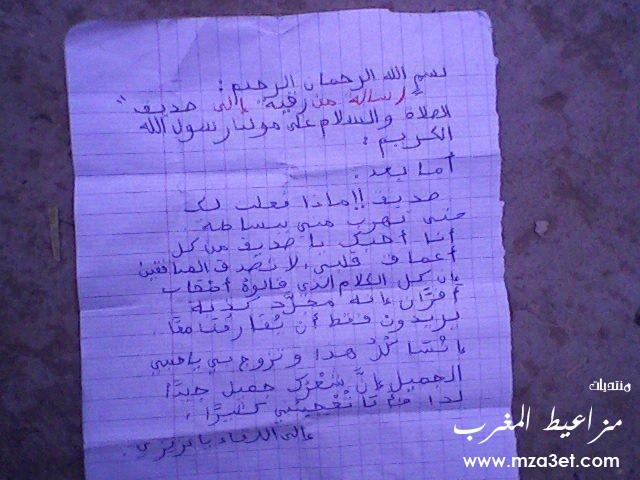 بسم الله الرحمان الرحيم :
رسالة من رقية إلى صديق "
الصلاة والسلام على مولنا رسول الله
الكريم :
أما بعد :
صديق !! ماذا فعلت لك
حتى تهرب مني ببساطة
أنا أحبك يا صديق من كل
أعماق قلبي، لا تصدق المنافقين
إن كل الكلام الذي قالوه أصحاب
أقران إنه مجرد كذبة
يريدون فقط أن يفارقنا معا.
إنسا كل هدا و تزوج بي يا حبيبي
الجميل إن شعرك جميل جيدا
لدا تعجبني كثيرا.
إلى اللقاء يا عزيزي.
منتديات
مزاعيط المغرب
www.mza3et.com